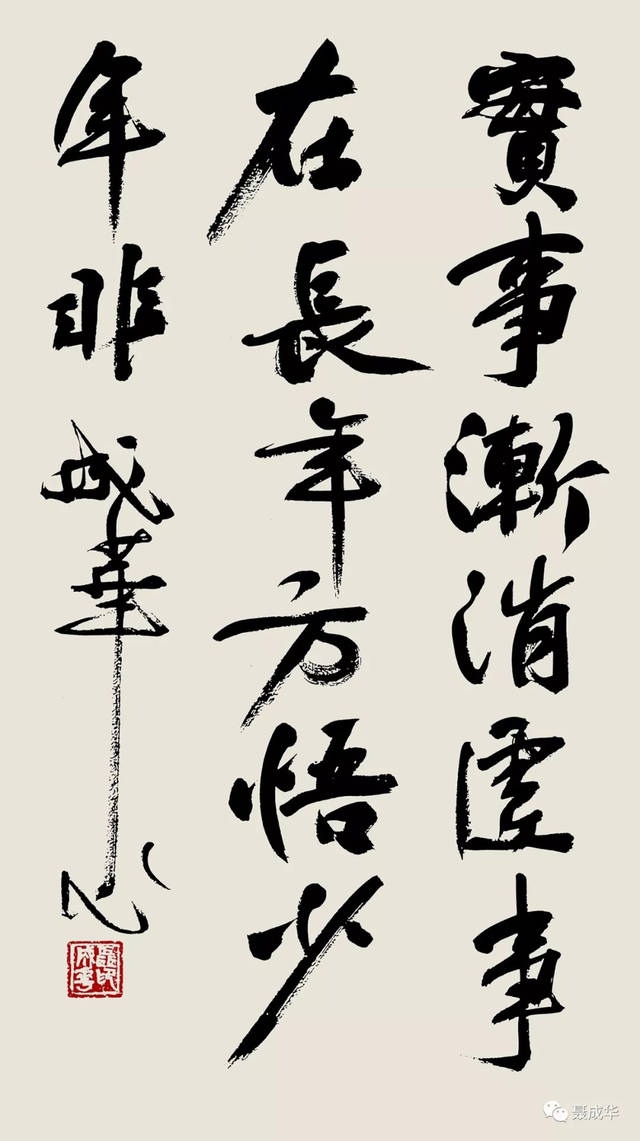 實事漸消虛事
在長年方悟少
年非 成華
聂成华